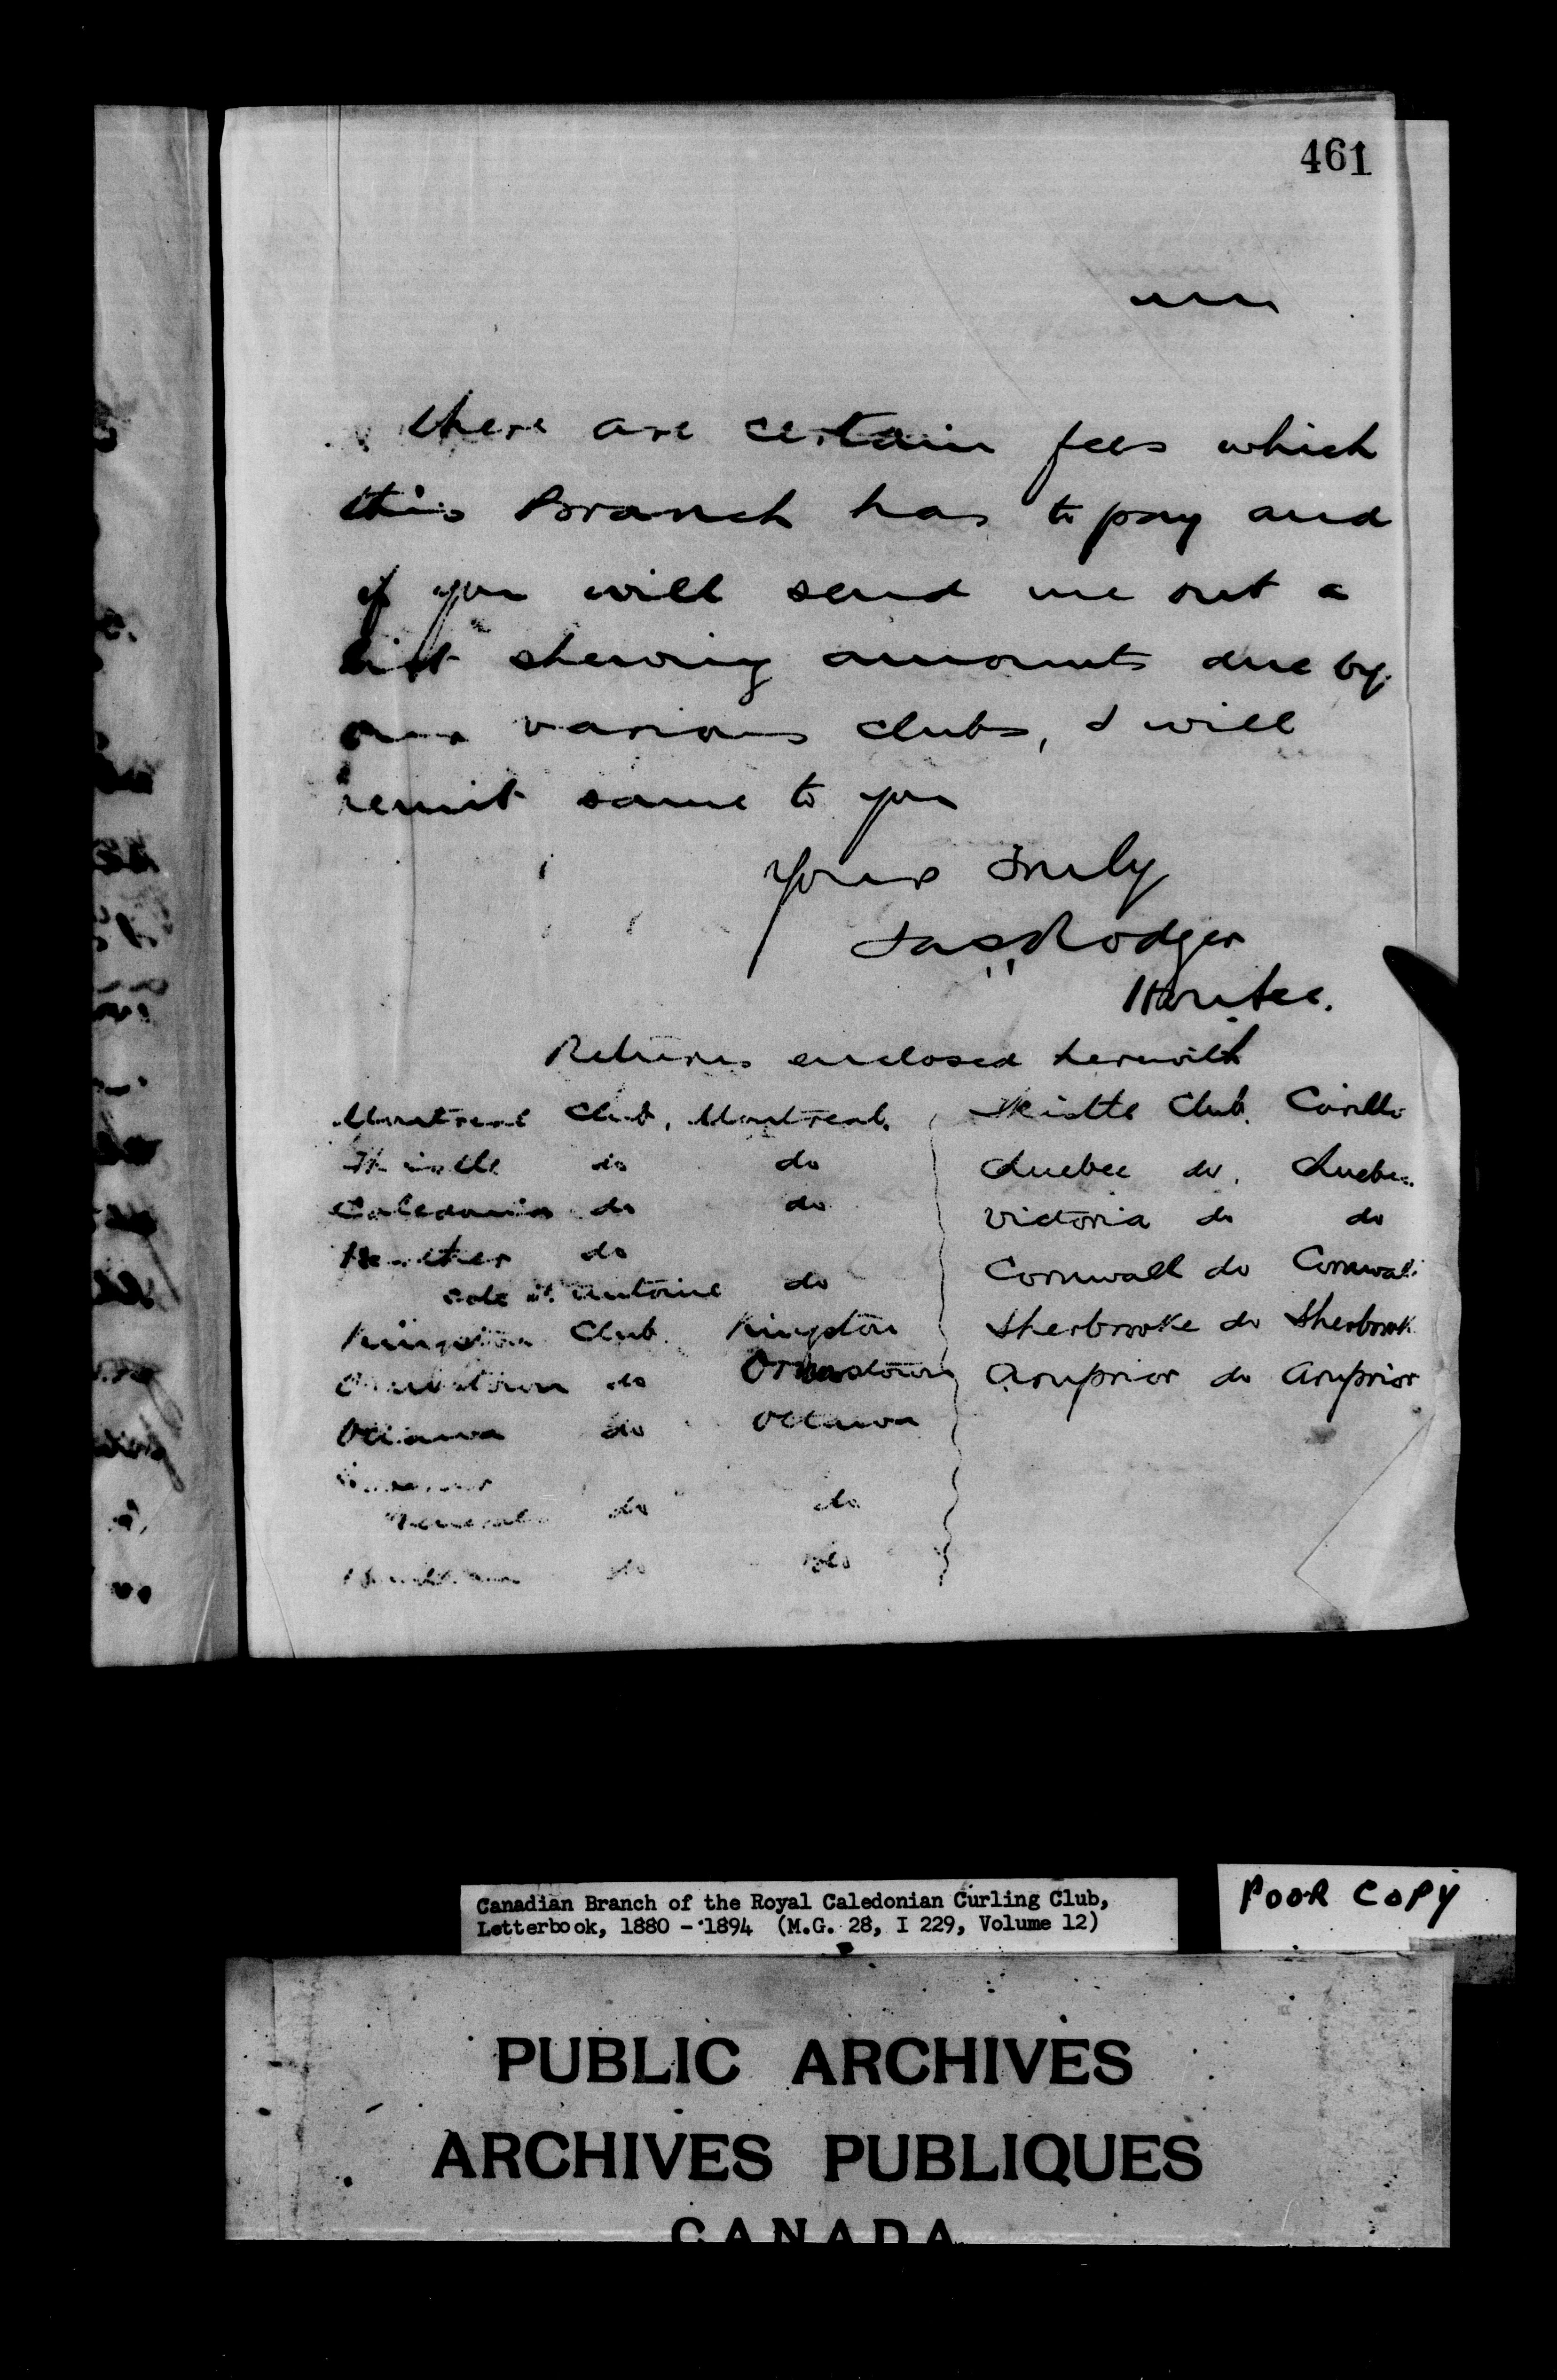 461
there are certain fees which
this Branch has to pay and
if you will send me out a
list shewing amounts due by
our various clubs, I will
remit same to you
Yours truly
Jas Rodger
Hon Sec.
Returns enclosed herewith
Montreal Club, Montreal.
Thistle do do
Caledonia do do
Heather do
Cote St. Antoine do
Kingston Club Kingston
Ormstown do Ormstown
Ottawa do Ottawa
do do
do do
Thistle Club.
Quebec do. Quebec.
Victoria do do
Cornwall do Cornwall
Sherbrooke do Sherbrook
Arnprior do Arnprior
Canadian Branch of the Royal Caledonian Curling Club,
Letterbook, 1880 - 1894 (M.G. 28, I 229, Volume 12)
POOR COPY
PUBLIC ARCHIVES
ARCHIVES PUBLIQUES
CANADA